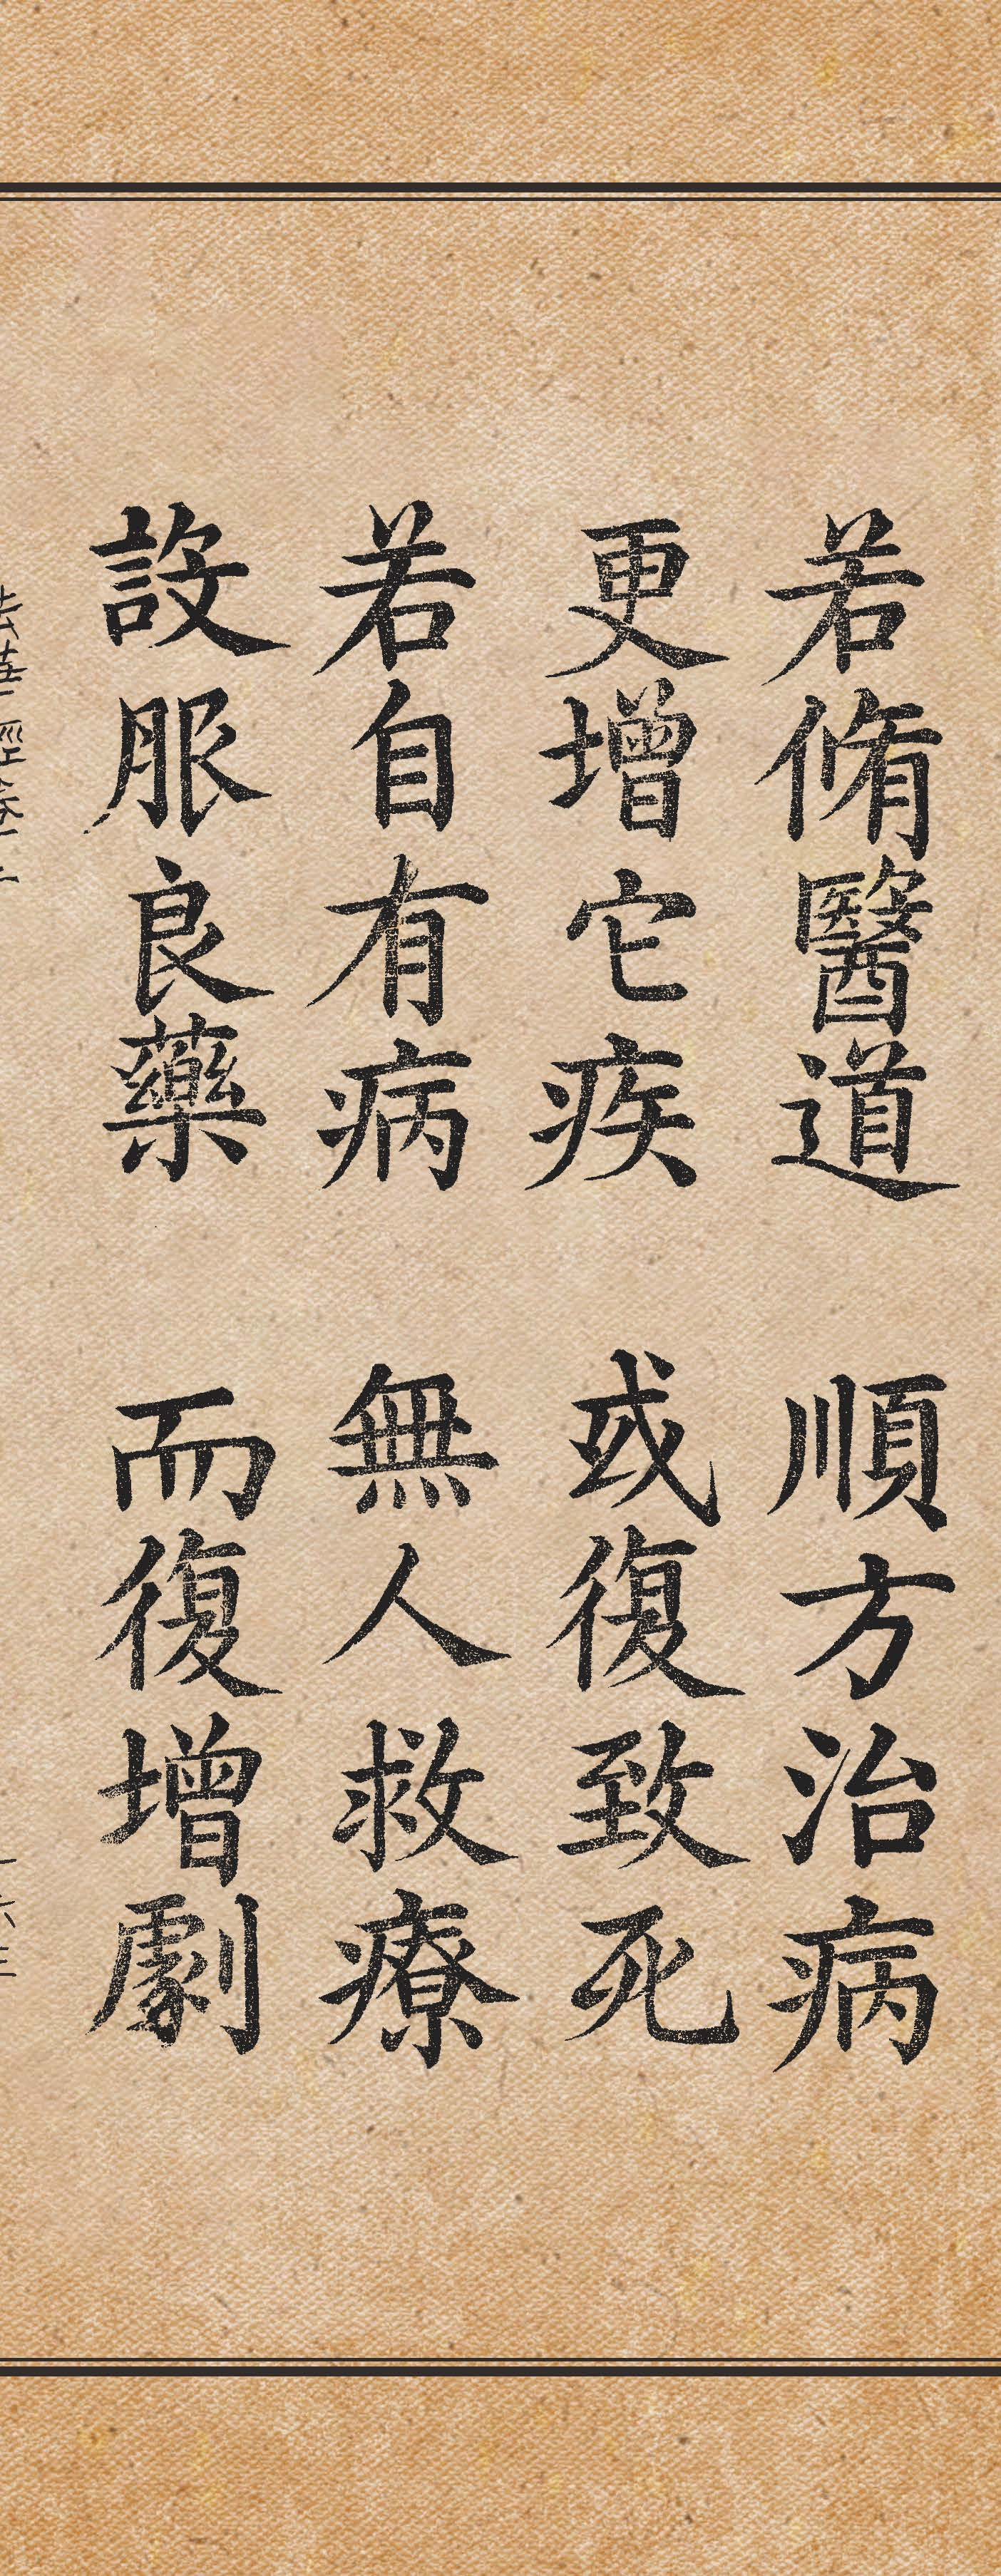 若脩醫道 順方治病
更增它疾 或復致死
若自有病 無人救療
設服良藥 而復增劇